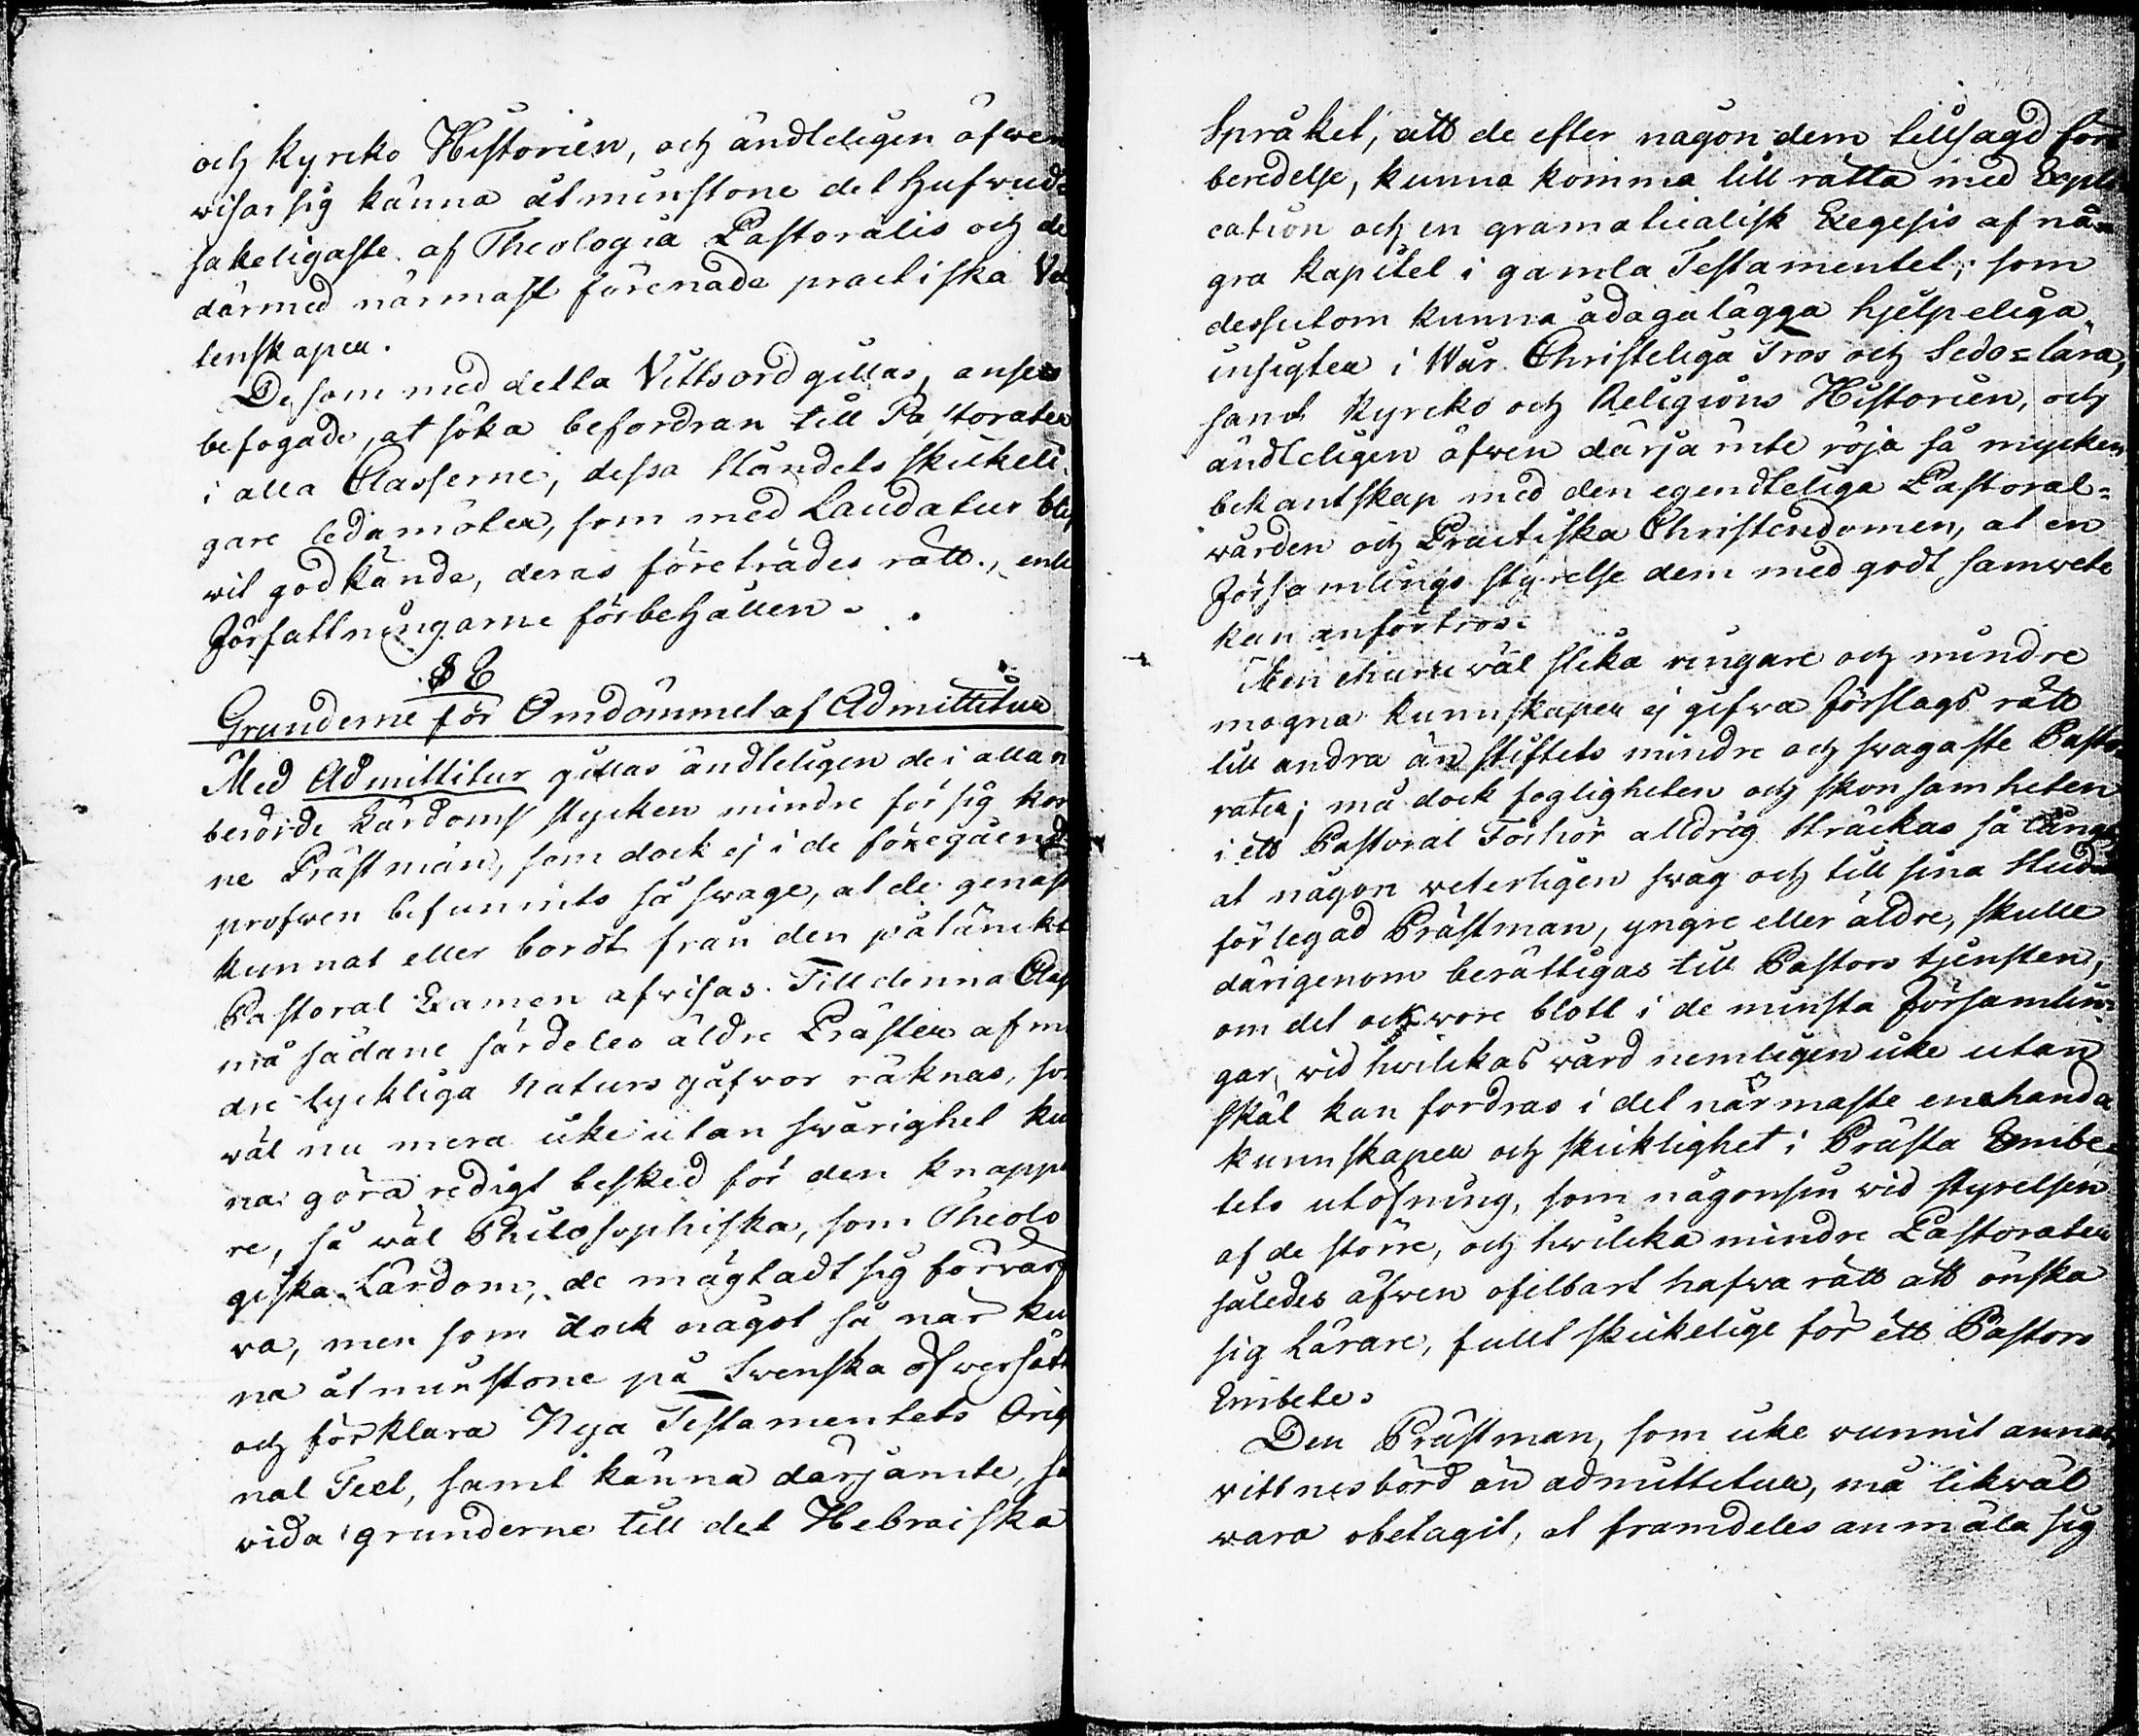 och Kyrcko Historien, och ändteligen äfwen
wisar sig känna åtminstone det hufwud-
sakeligaste af Theologia Pastoralis och de
därmed närmast förenade practiska Ve
tenskaper.
De som med detta Vittsord gillas, anses
befogade, at söka befordran till Pastorater
i alla Classerne, dessa Ståndets skickeli-
gare ledamöter, som med Laudatur blif
vit godkände, deras företrädes rätt, enl
Författningarne förbehållen.
§ E
Grunderne för Omdömmet af Admittitur
Med Admittitur gillas ändteligen de i allan
berörde Lärdoms stycken mindre för sig kom
ne Prästmän, som dock ej i de föregående
profwen befunnits så swage, at de genast
kunnat eller bordt från den påtänckte
Pastoral Examen afwisas. Till denna Class
må sådane särdeles äldre Präster af min
dre lyckliga Naturs gåfwor räknas, som
wäl nu mera icke utan swårighet kun
na göra redigt besked för den knappa
re, så wäl Philosophiska, som Theolo
giska Lärdom, de mägtadt sig förvärf
va, men som dock något så när kun
na åtminstone på Swenska öfwersätta
och förklara Nya Testamentets Origi
nal Text, samt känna därjämte, så
vida grunderne till det Hebraiska
Språket, att de efter någon dem tillsagd för
beredelse, kunna komma till rätta med Expli
cation och en gramaticalisk Exegesis af nå-
gra Kapitel i gamla Testamentet, som
dessutom kunna ådagalägga hjelpeliga
insigter i Wår Christeliga Tros och Sedo-lära,
samt Kyrcko och Religions Historien, och
ändteligen äfwen därja inte röja så mycken
bekantskap med den egendteliga Pastoral-
wården och Practiska Christendomen, at en
Församlings styrelse dem med godt samwete
kan anförtros.
Men ehuru wäl slika ringare och mindre
mogna kunnskaper ej gifwa Förslags rätt
till andra än stiftets mindre och swagaste Pasto-
rater; må dock fogligheten och skonsamheten
i ett Pastoral Förhör alldrig sträckas så långt,
at någon veterligen swag och till sina Studier
förlegad Prästman, yngre eller äldre, skulle
därigenom berättigas till Pastors tjensten,
om det ock wore blott i de minsta Församlin-
gar, wid hwilckas wård nemligen icke utan
Skäl kan fordras i det närmaste enahanda
kunnskaper och skicklighet i Prästa Embe-
tets utöfning, som någonsin wid styrelsen
af de större, och hwilcka mindre Pastorater
således äfwen ofelbart hafwa rätt att önska
sig Lärare, fullt skickelige för ett Pastors
Embete.
Den Prästman, som icke wunnit annat
vittnesbörd än admittitur, må likwäl
wara obetagit, at framdeles anmäla sig